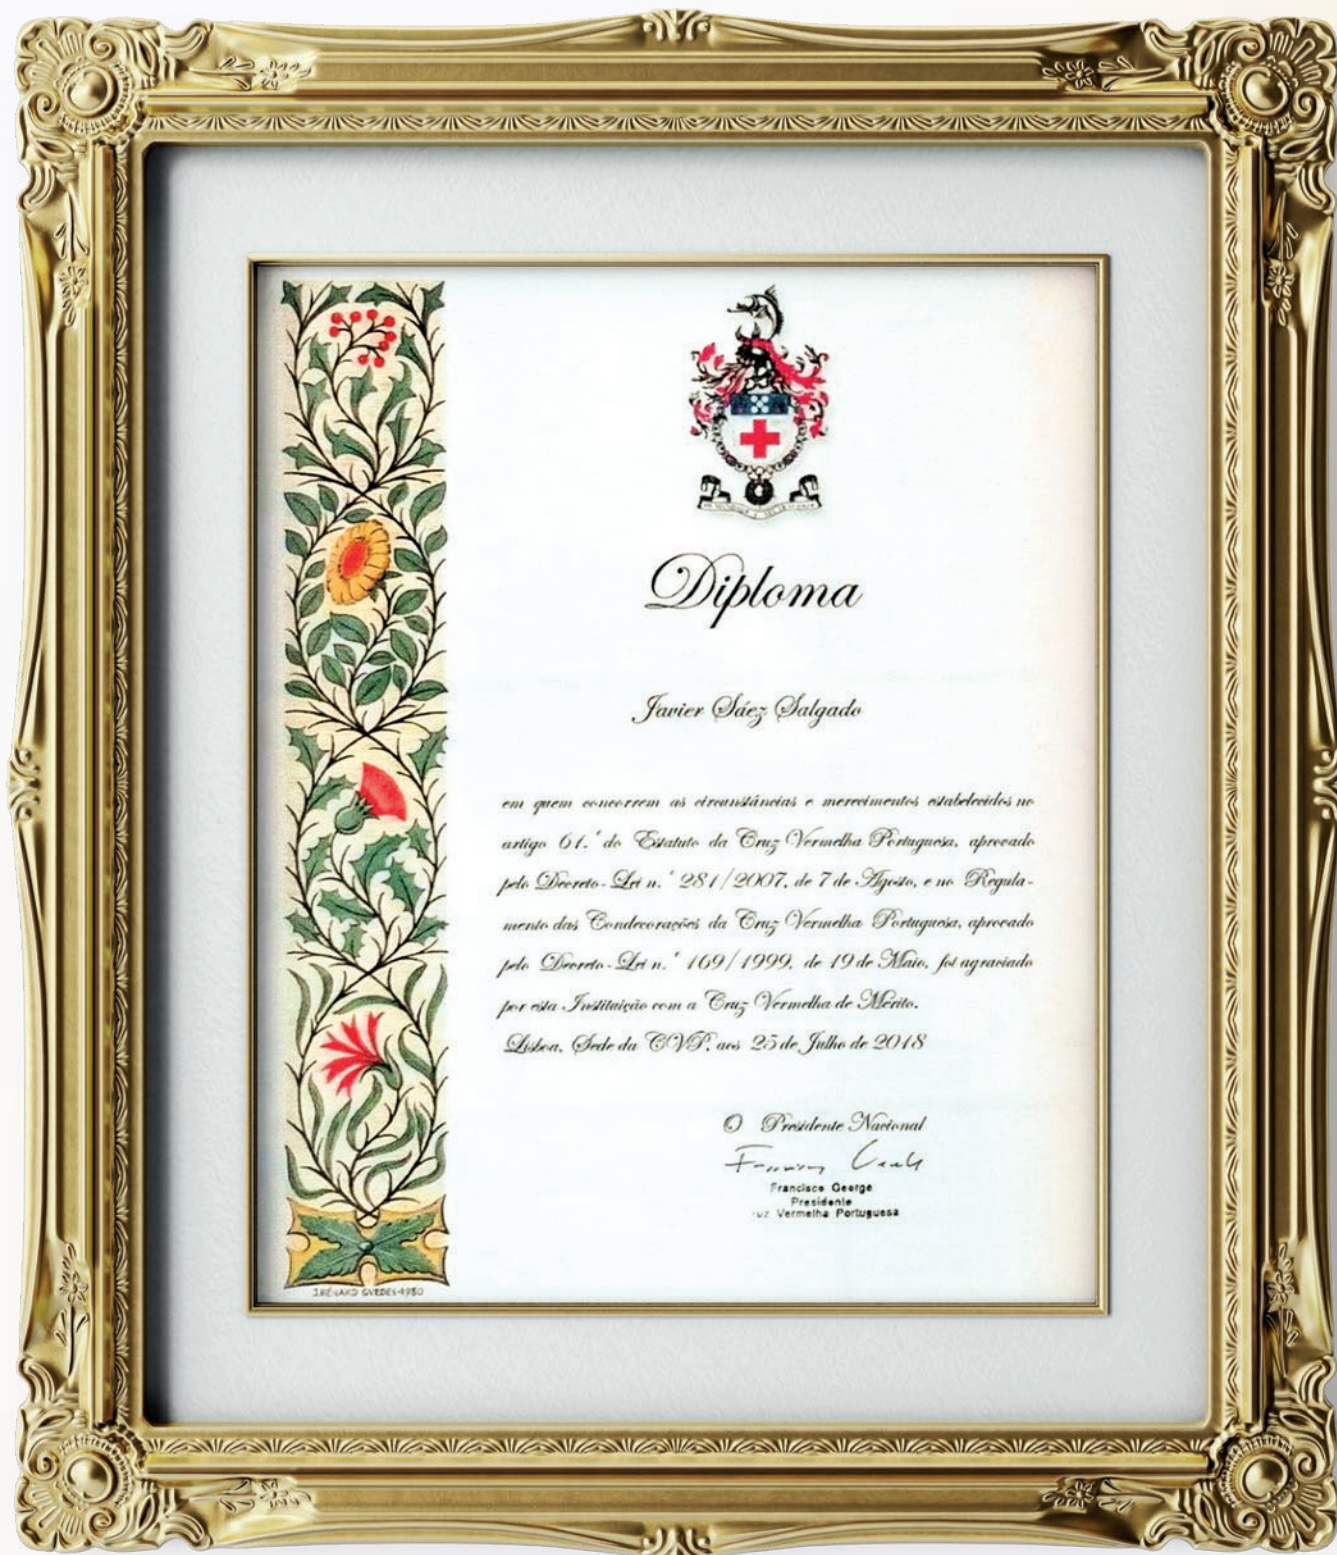 Diploma
Javier Sáez Salgado
em quem concorrem as circunstâncias e merecimentos estabelecidos no
artigo 61.º do Estatuto da Cruz Vermelha Portuguesa, aprovado
pelo Decreto-Lei n.º 281/2007, de 7 de Agosto, e no Regula-
mento das Condecorações da Cruz Vermelha Portuguesa, aprovado
pelo Decreto-Lei n.º 169/1999, de 19 de Maio, foi agraciado
por esta Instituição com a Cruz Vermelha de Mérito.
Lisboa, Sede da CVP, aos 25 de Julho de 2018
O Presidente Nacional
Francisco George
Presidente
uz Vermelha Portuguesa
GUEDES-1980